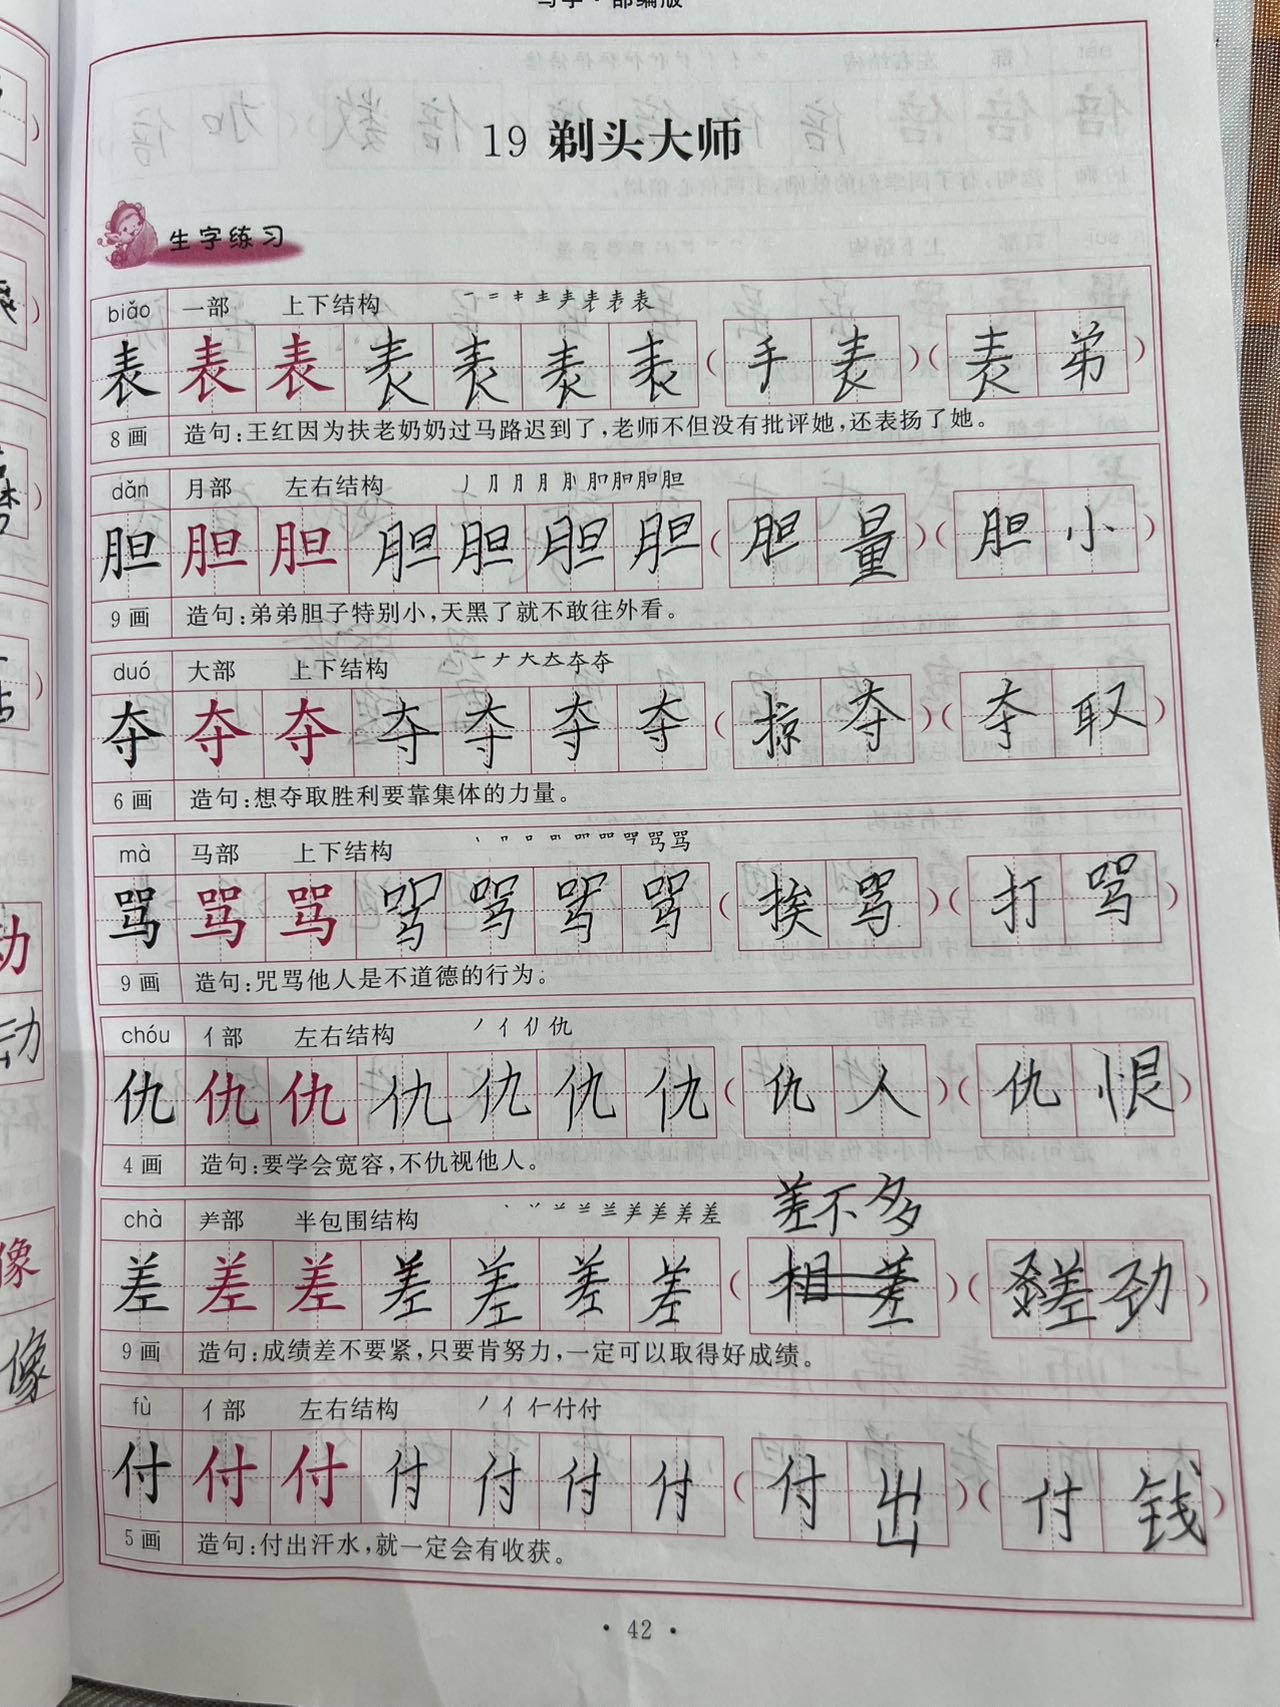 写字·部编版
19 剃头大师
生字练习
biǎo 一部 上下结构 一 二 キ 主 声 耒 表 表
表 表 表 表 表 表 表 (手表)(表弟)
8画 造句:王红因为扶老奶奶过马路迟到了,老师不但没有批评她,还表扬了她。
dǎn 月部 左右结构
胆 胆 胆 胆 胆 胆 胆 (胆量)(胆小)
9画 造句:弟弟胆子特别小,天黑了就不敢往外看。
duó 大部 上下结构
夺 夺 夺 夺 夺 夺 夺 (掠夺)(夺取)
6画 造句:想夺取胜利要靠集体的力量。
mà 马部 上下结构
骂 骂 骂 骂 骂 骂 骂 (挨骂)(打骂)
9画 造句:咒骂他人是不道德的行为。
chóu 亻部 左右结构 ノ 亻 仇 仇
仇 仇 仇 仇 仇 仇 仇 (仇人)(仇恨)
4画 造句:要学会宽容,不仇视他人。
差不多
chà 羊部 半包围结构
差 差 差 差 差 差 差 (相差)(差劲)
9画 造句:成绩差不要紧,只要肯努力,一定可以取得好成绩。
fù 亻部 左右结构 ノ 亻 仁 付 付
付 付 付 付 付 付 付 (付出)(付钱)
5画 造句:付出汗水,就一定会有收获。
·42·